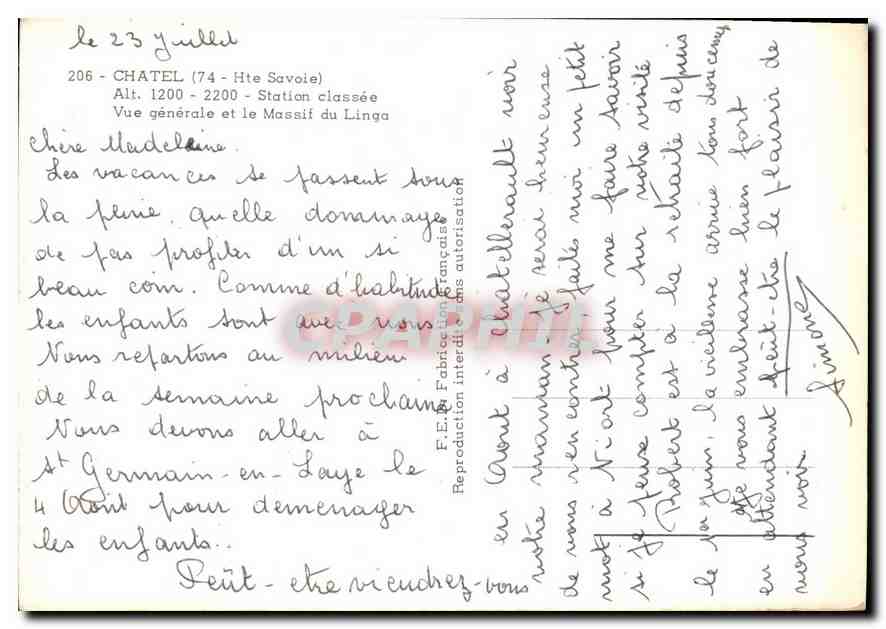 le 23 Juillet
206 - CHATEL (74 - Hte Savoie)
Alt. 1200 - 2200 - Station classée
Vue générale et le Massif du Linga
Chère Madeleine.
Les vacances se passent sous
la pluie. quelle dommage
de pas profiter d'un si
beau coin. Comme d'habitude
les enfants sont avec nous
Nous repartons au milieu
de la semaine prochaine
Nous devons aller à
St Germain-en-Laye le
4 Août pour demenager
les enfants..
Peût-etre viendrez-vous
en Août à Chatellerault voir
votre maman. Je serai heureuse
de vous rencontrer, faites moi un petit
mot à Niort pour me faire savoir
si je peux compter sur votre visite
Robert est à la retraite depuis
le 1er Juin, la vieillesse arrive tous doucement
Je vous embrasse bien fort
en attendant peût-etre le plaisir de
vous voir.
Simone
F.E.D. Fabrication Française
Reproduction interdite sans autorisation
CPAPHIL